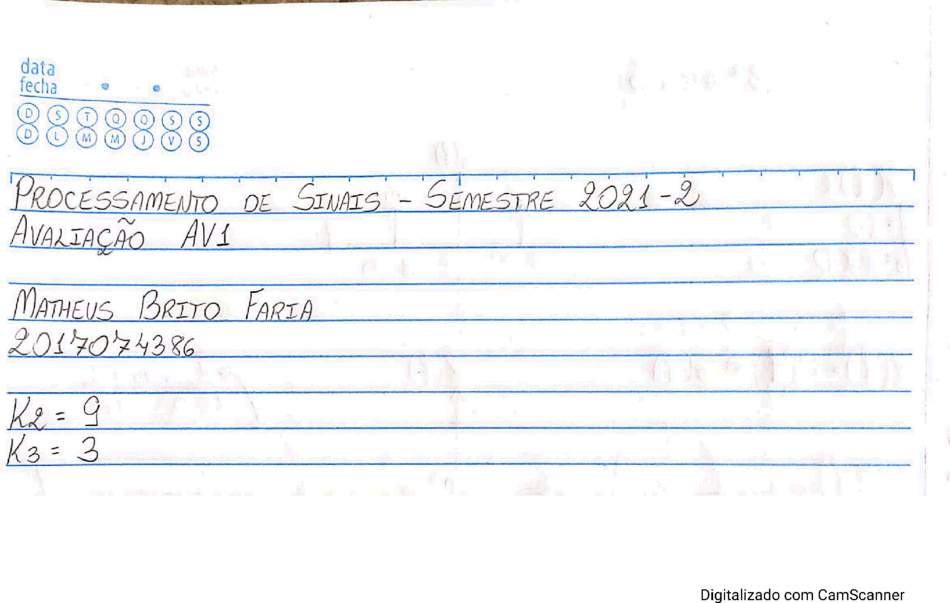 data
fecha
D S T Q Q S S
D L M M J V S
PROCESSAMENTO DE SINAIS - SEMESTRE 2021-2
AVALIAÇÃO AV1
MATHEUS BRITO FARIA
2017074386
K2 = 9
K3 = 3
Digitalizado com CamScanner